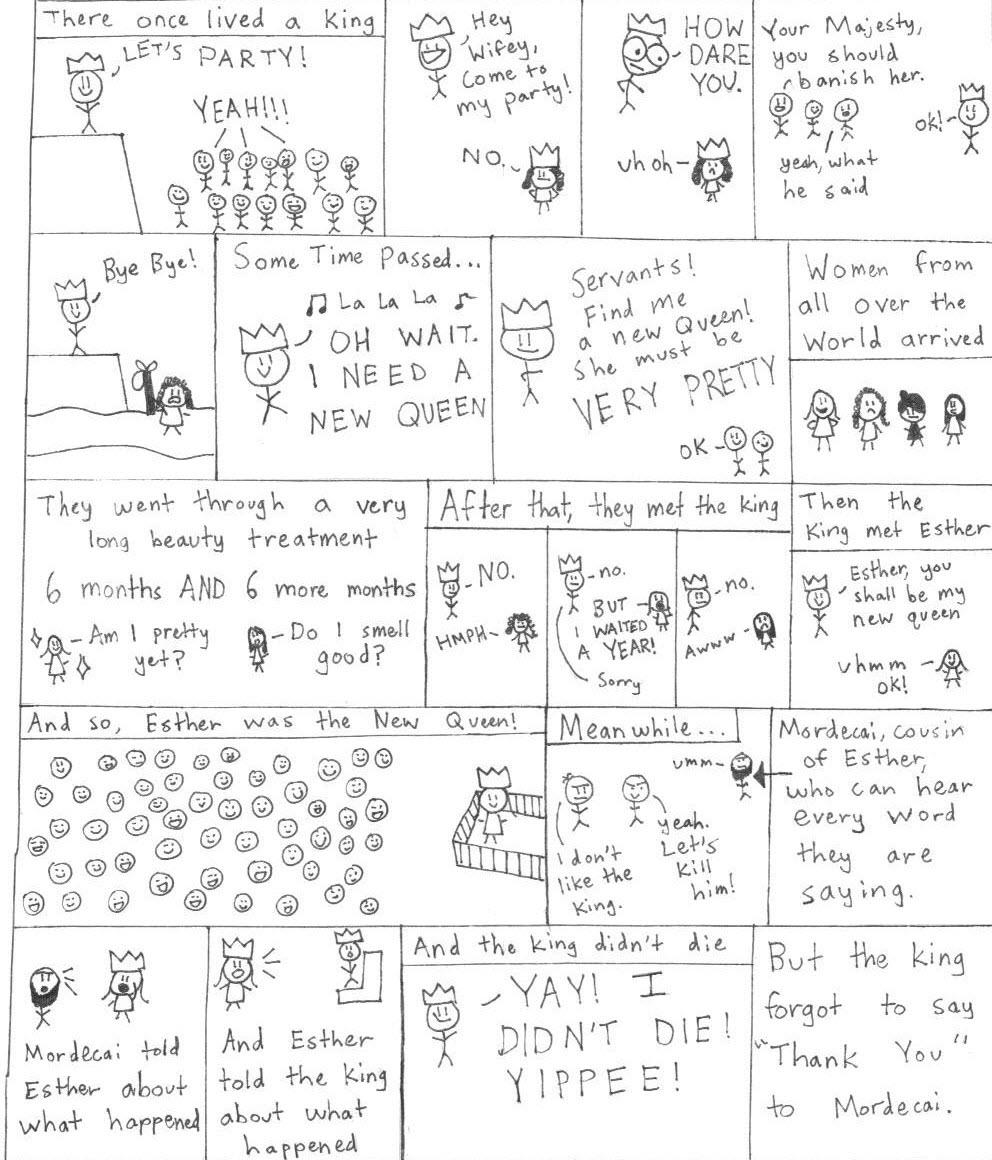 There once lived a king
LET'S PARTY!
YEAH!!!
Hey
Wifey,
Come to
my party!
NO.
HOW
DARE
YOU.
uh oh
Your Majesty,
you should
banish her.
ok!
yeah, what
he said
Bye Bye!
Some Time Passed...
♫ La La La ♪
OH WAIT.
I NEED A
NEW QUEEN
Servants!
Find me
a new Queen!
She must be
VERY PRETTY
OK
Women from
all over the
World arrived
They went through a very
long beauty treatment
6 months AND 6 more months
Am I pretty
yet?
Do I smell
good?
After that, they met the king
NO.
HMPH
no.
BUT
I WAITED
A YEAR!
Sorry
no.
Awww
Then the
King met Esther
Esther, you
shall be my
new queen
uhmm
ok!
And so, Esther was the New Queen!
Meanwhile...
umm
I don't
like the
king.
yeah.
Let's
kill
him!
Mordecai, cousin
of Esther,
who can hear
every word
they are
saying.
Mordecai told
Esther about
what happened
And Esther
told the king
about what
happened
And the king didn't die
YAY! I
DIDN'T DIE!
YIPPEE!
But the king
forgot to say
"Thank You"
to Mordecai.